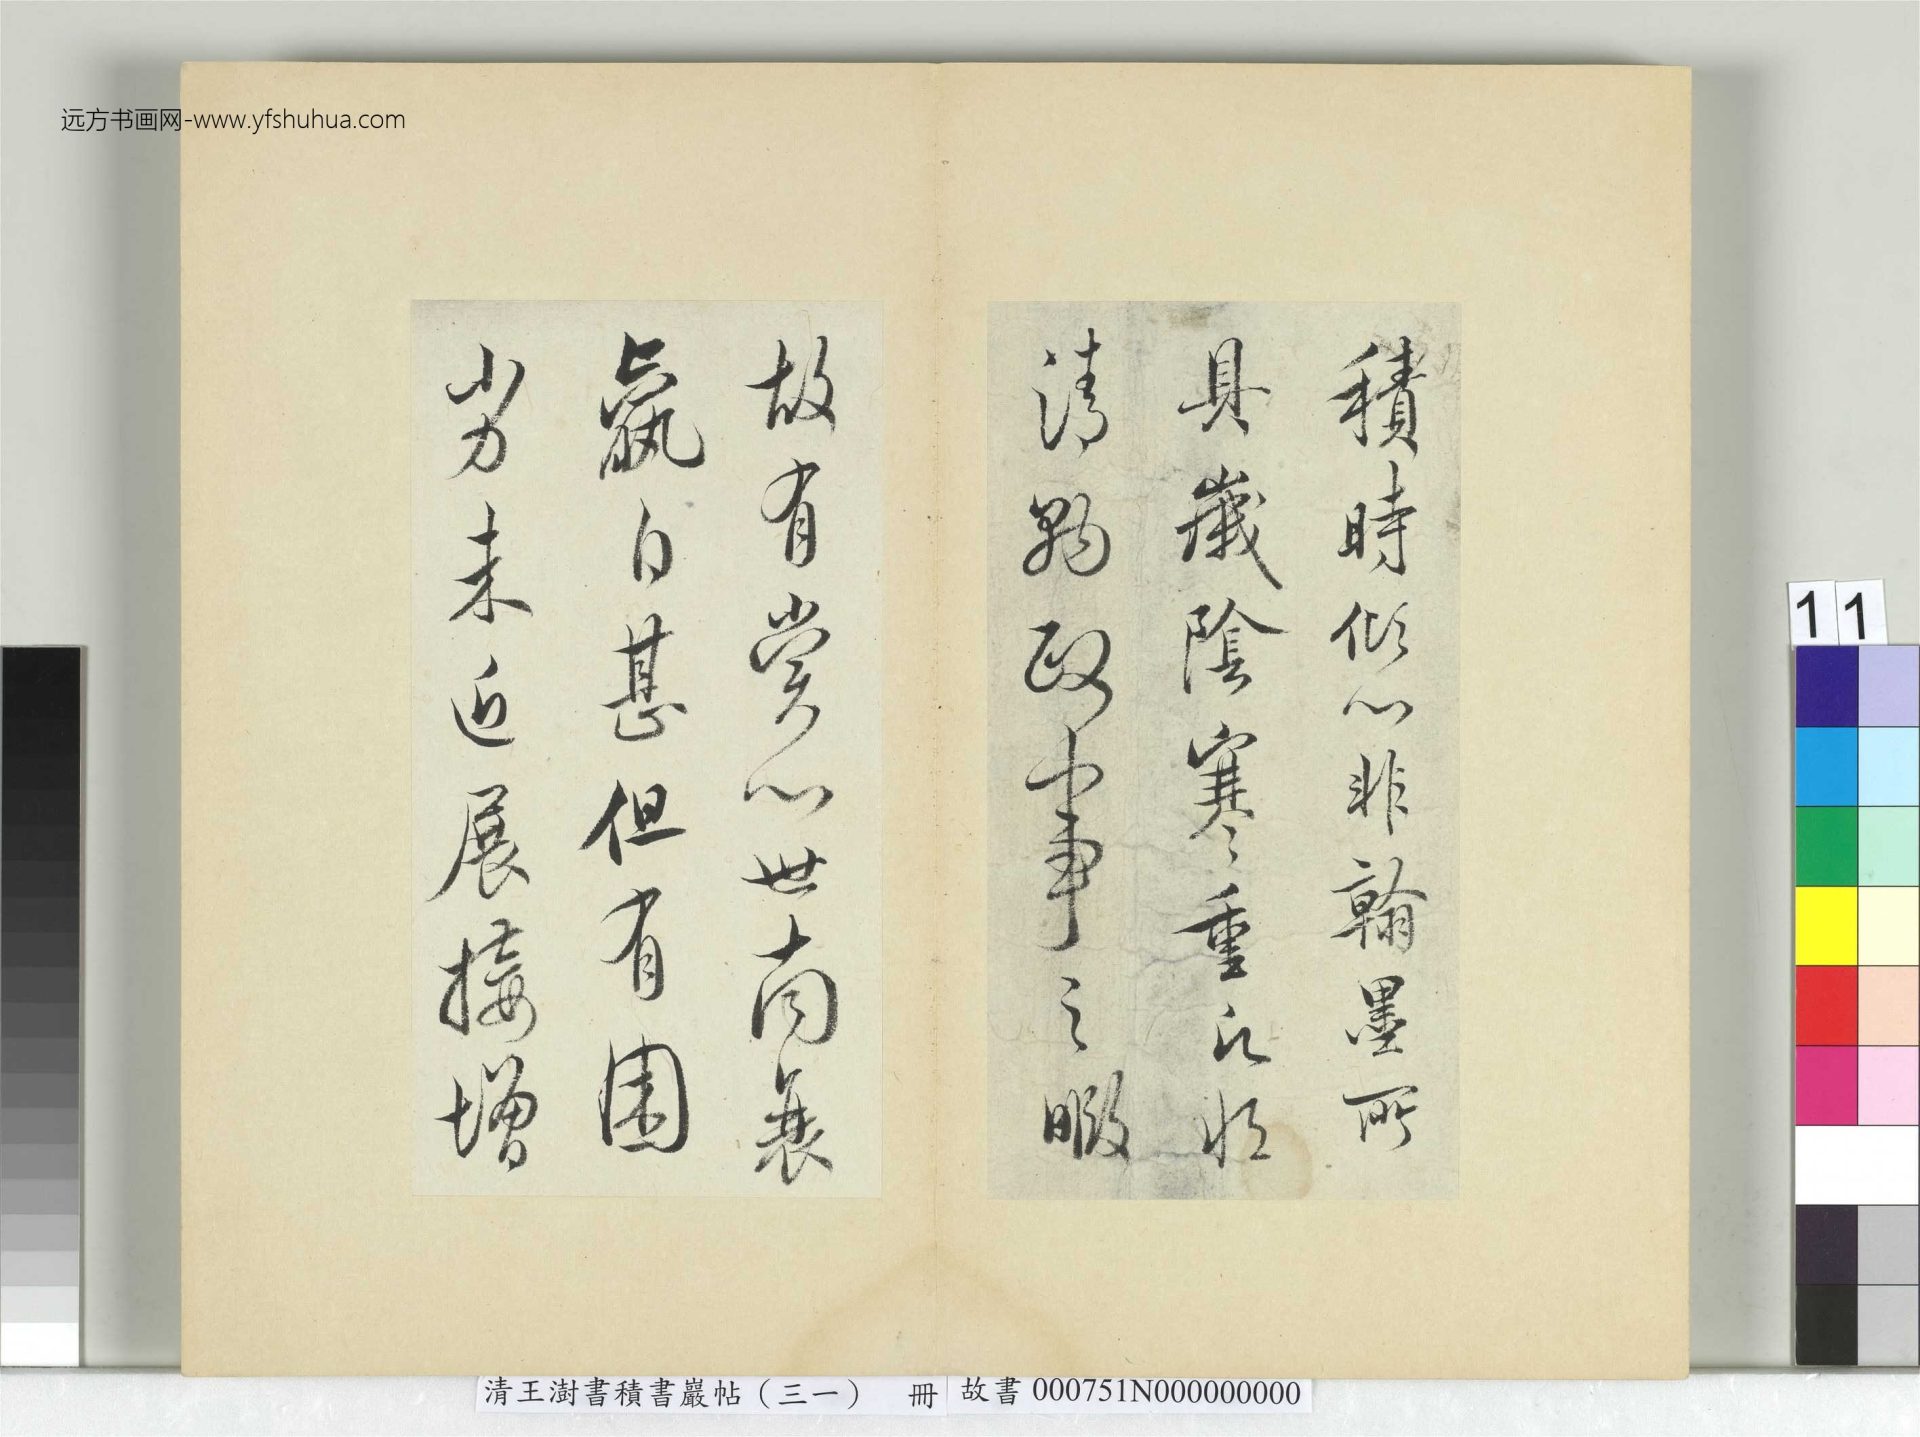 远方书画网-www.yfshuhua.com
積時傾心非翰墨所
具歲陰寒重比想
清豫政事之暇
故有賞心世南衰
羸日甚但有困
劣未近展接增
11
清王澍書積書巖帖（三一） 冊
故書 000751N000000000